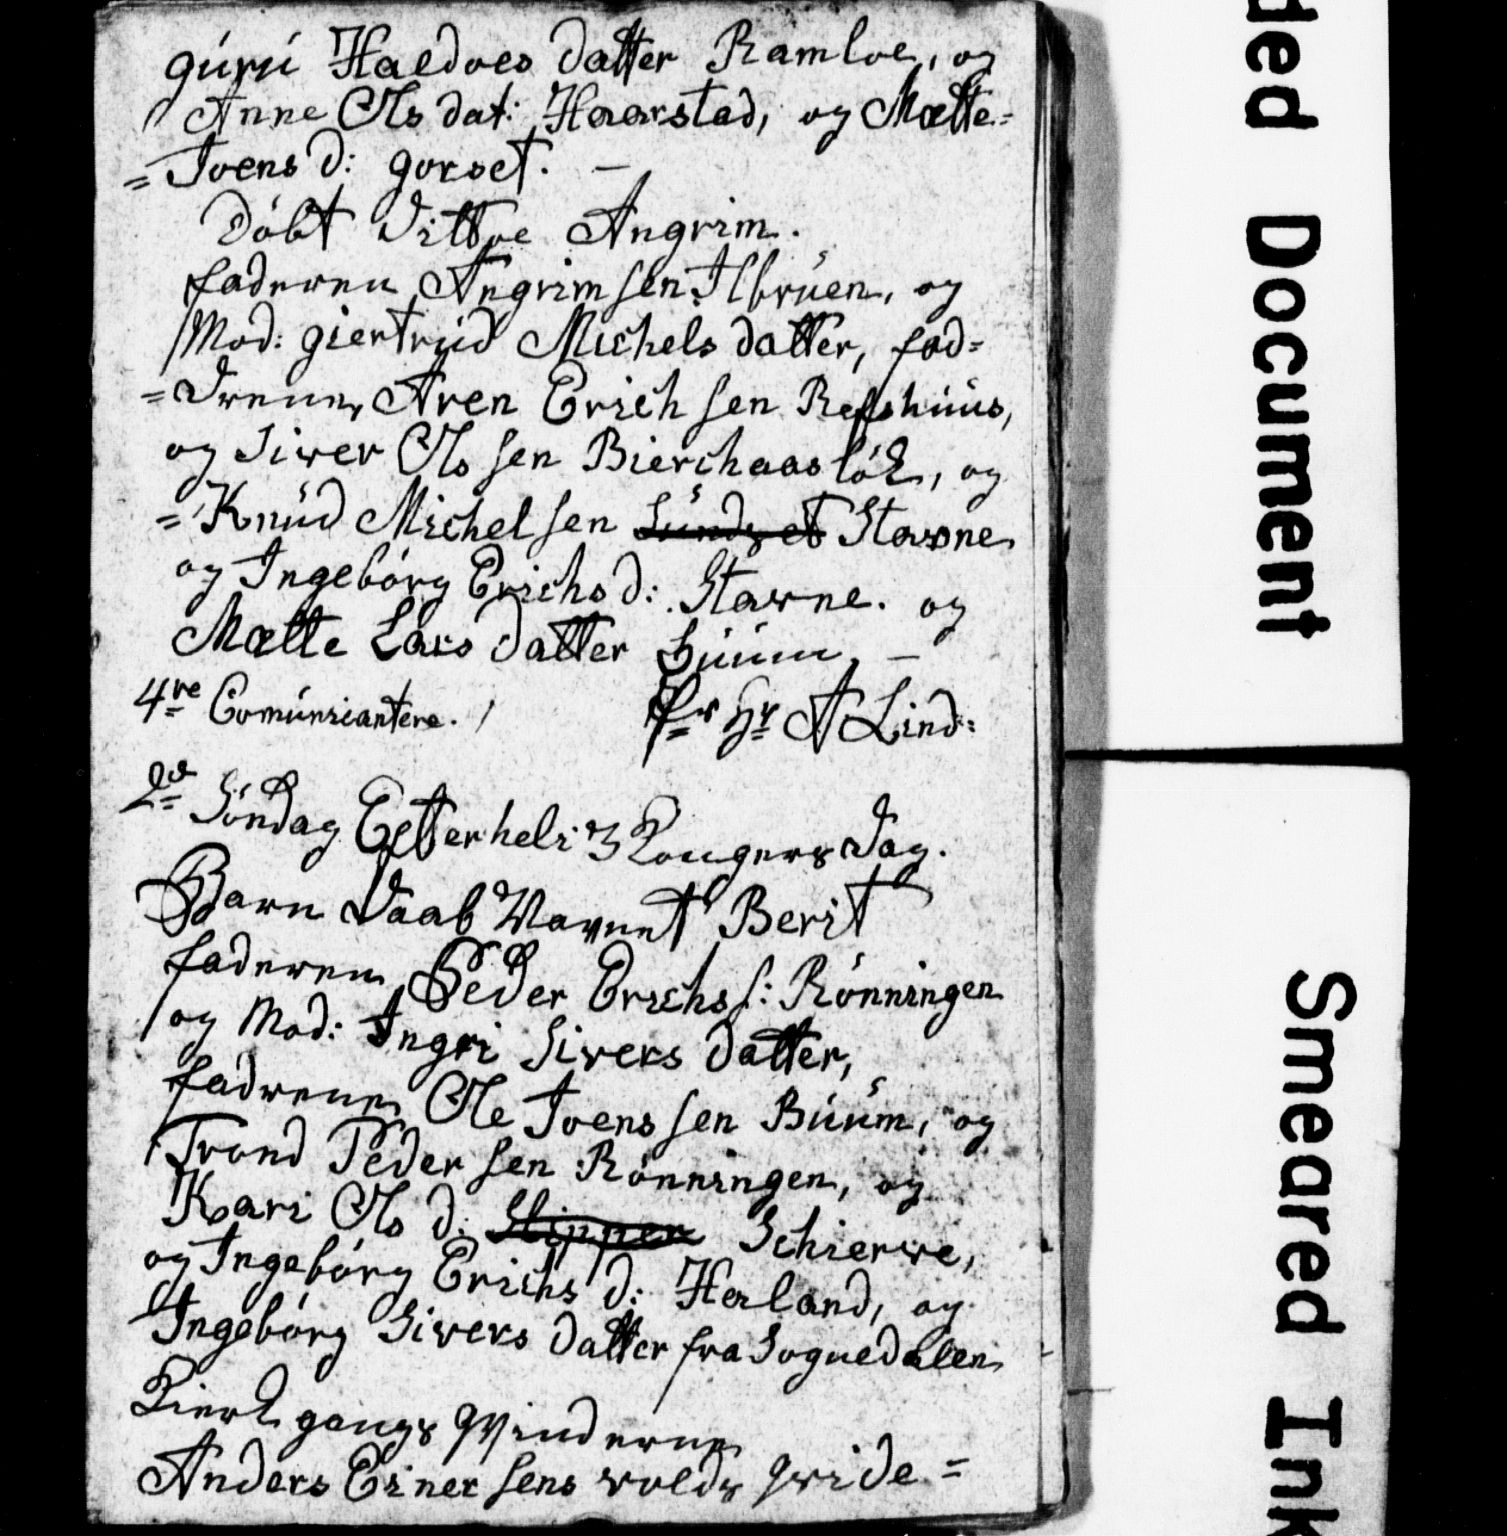 gúrú Haldoes datter Ramloe, og
Anne Ols dat: Haarstad, og Mætte=
=Joens d: gorset. —
Döbt Dittoe Angrim.
faderen Angrimsen Ilbrúen, og
Mod: giertrúd Michels datter, fad=
=drene, Aren Erichsen Refshúus,
og Siver Olssen Bierchaasløk, og
=Knúd Michelsen Súndset Stavne
og Ingebórg Erichs d: Stavne. og
Mætte Lars datter Búúm, —
4re Comúniantere. / pr Hr A Lind:
2d Söndag Efter heli 3 Kongers Dag.
Barn Daab Navnet Berit
faderen Peder Erichs s: Rönningen
og Mod: Ingri Sivers datter,
fadrene, Ole Joenssen Búúm, og
Trond Pedersen Rönningen, og
Kari Ols d: Slipper Schierve,
og Ingebórg Erichs d: Herland, og
Ingebórg Sivers datter fra Soguedalen
Kierkgangs Qvinderne
Anders Einersens volds qvide=
ded Document
Smeared Ink